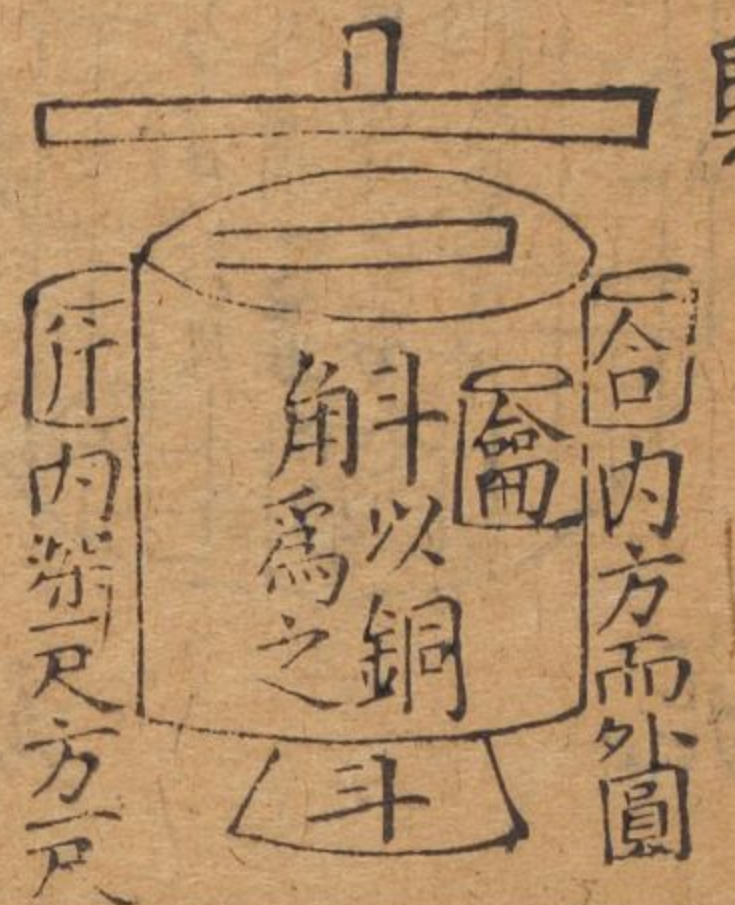 合
内方而外圓
龠
斛以銅
爲之
升
内深一尺方一尺
斗